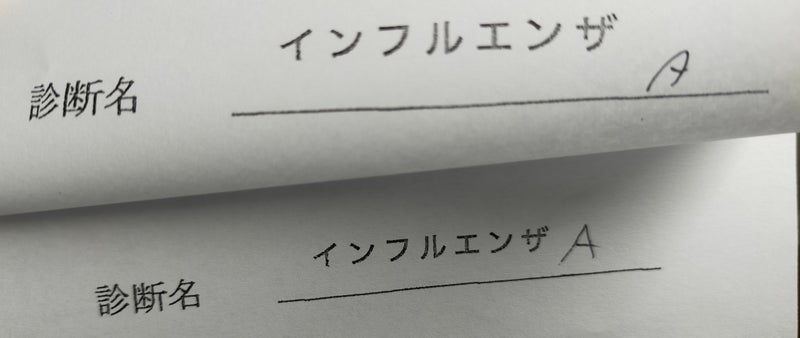 診断名 インフルエンザ A
診断名 インフルエンザ A